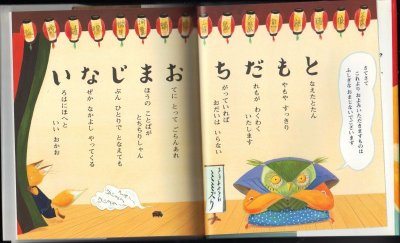 さてさて
これより およみいただきますものは
ふしぎな おまじないでございます
ともだち
なえたとたん
やもや すっきり
れもが わくわく
いたします
がっていれば
おだいは いらない
おまじない
てに とって ごらんあれ
ほうの ことばが
ぶん ひとりで となえても
ぜか なかよし やってくる
ろはにほへと
いい おかお